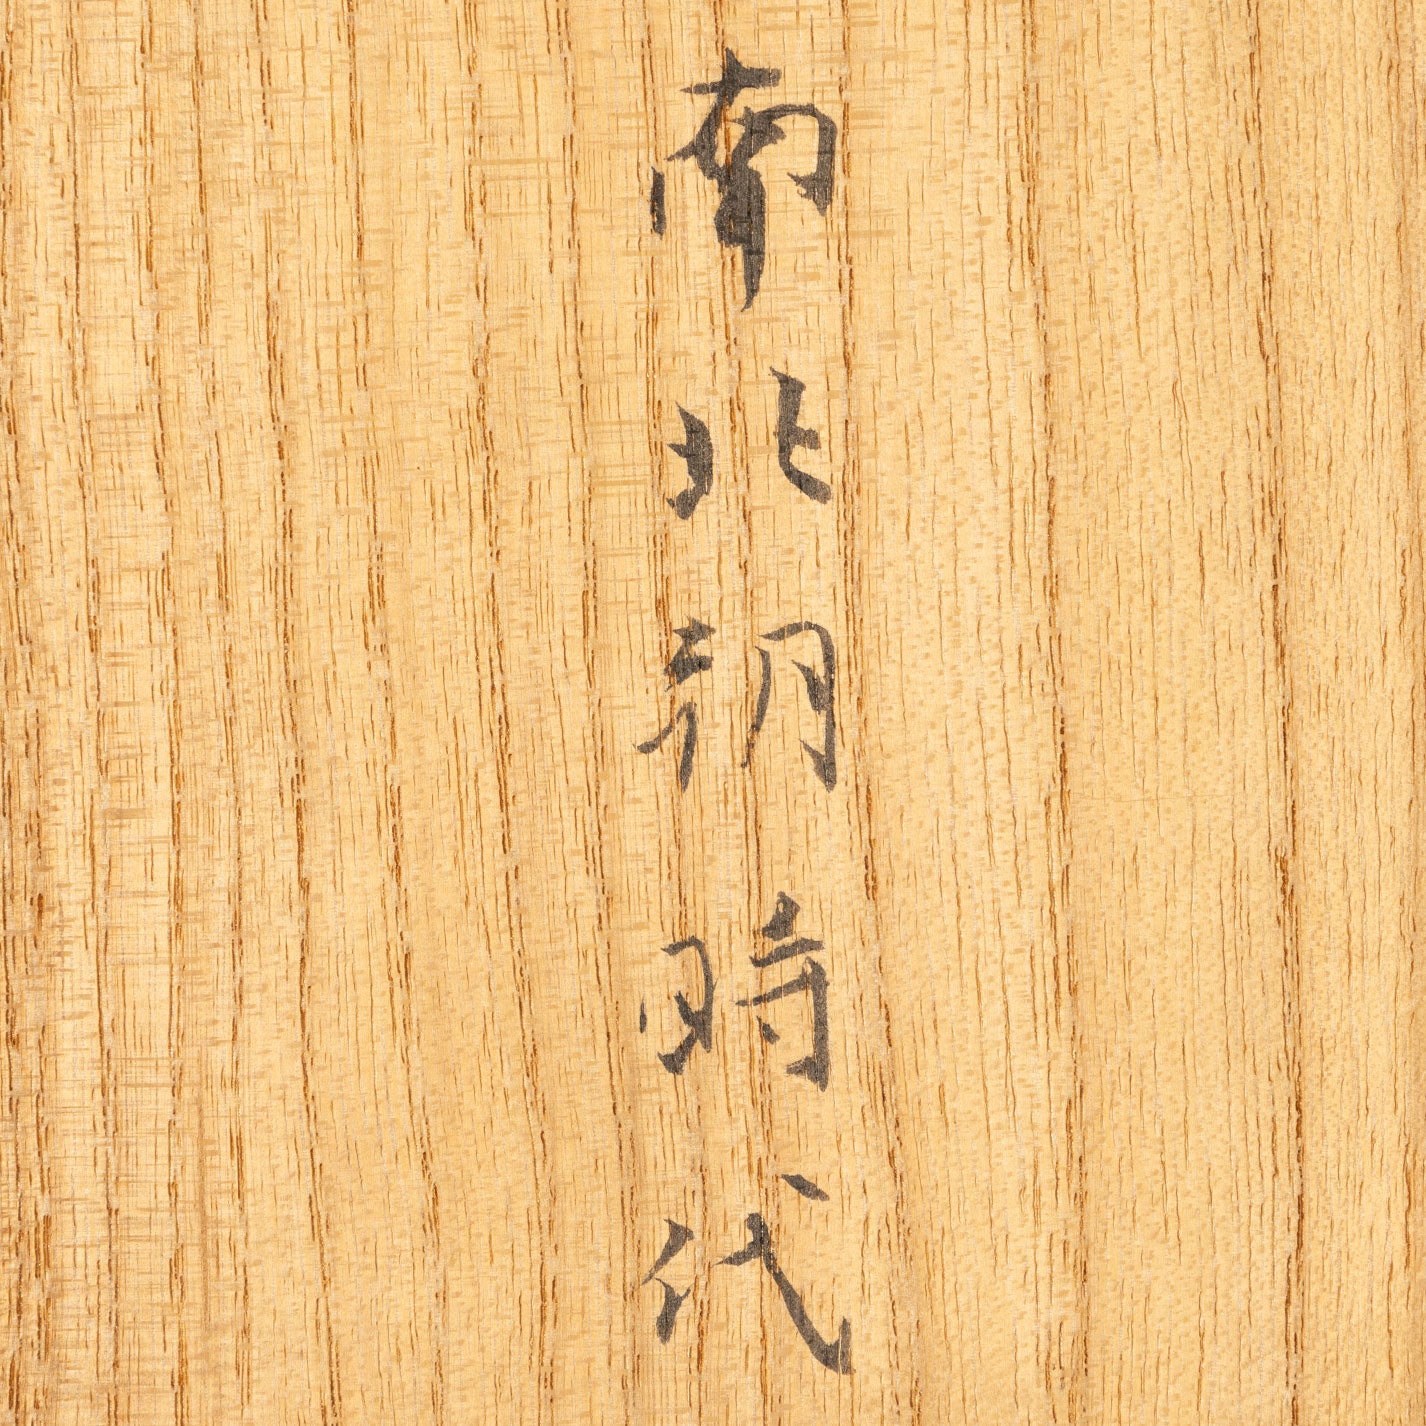 南北朝時代